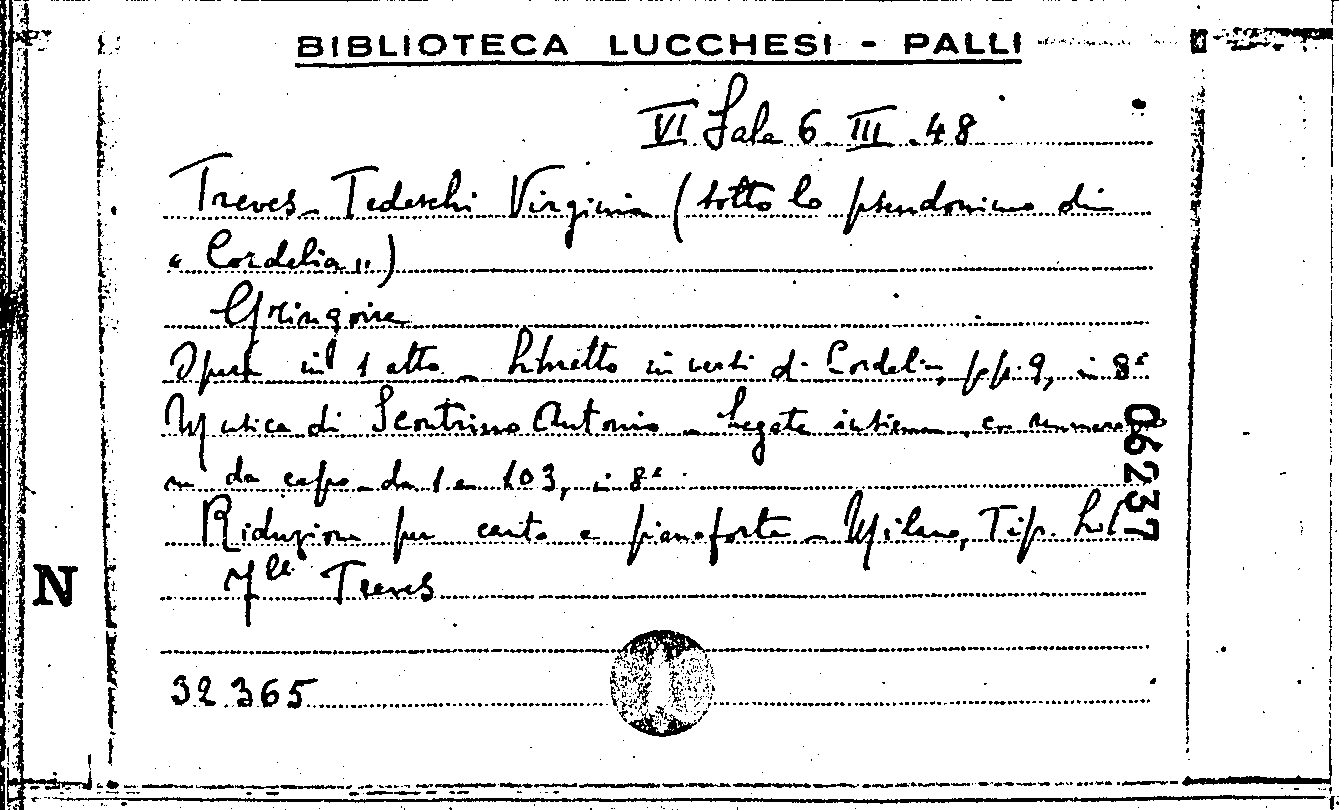 BIBLIOTECA LUCCHESI - PALLI
VI Sala 6 III .48
Treves-Tedeschi Virginia (sotto lo pseudonimo di
"Cordelia")
Gringoire
Opera in 1 atto - Libretto in versi di Cordelia, pp. 9, in 8°
Musica di Scontrino Antonio - Legate insieme, con numerazio
ne da capo da 1 a 103, in 8°
Riduzione per canto e pianoforte - Milano, Tip. Lit.
F.lli Treves
32365
06237
N